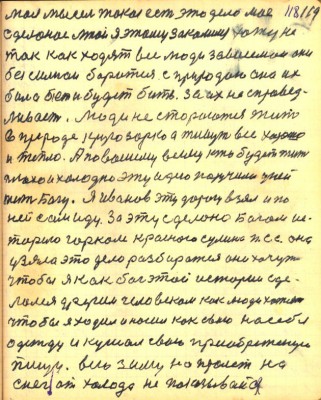 моя мысля такая есть это дело мое 118/69
сделоное мной я этому закалину хожу не
так как ходят все люди зависемом они
без силном борятся с природой она их
била бьет и будет бить. За их несправед-
ливасть. Люди не стораются жить
в природе кругозорко а пишут все хорошо
и тепло. А поваишму всему кто будит жить
плохо и холодно эту идею получили у ней
жит Богу. Я Иванов эту дорогу взял и по
ней сам иду. За эту сделоно Богам ис-
торию горком Красного сулина псс она
узяла это дело разбиратся они хочут
чтобы я как бог этой истории сде-
лался другим человеком как люди хотят
чтобы я ходил и носил как свою на себя
одежду и кушал свою приобретеную
пищу. всю зиму на пролет на
снег от холода не показывайся